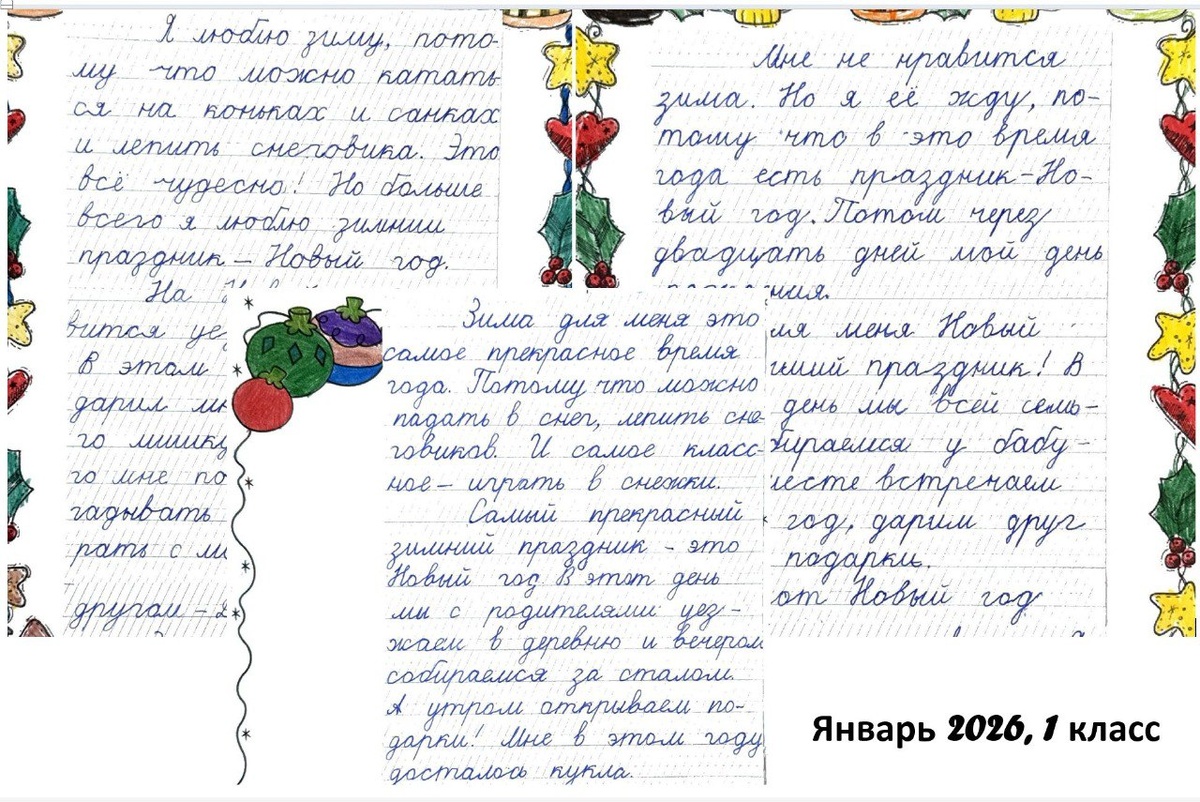 Я люблю зиму, пото-
му что можно катать
ся на коньках и санках
и лепить снеговика. Это
всё чудесно! Но больше
всего я люблю зимний
праздник – Новый год.
На
вится уез
В этом
дарил мн
го мишку
го мне по
гадывать
рать с ми
другом –
Мне не нравится
зима. Но я её жду, по-
тому что в это время
года есть праздник-Но-
вый год. Потом через
двадцать дней мой день
ния.
ля меня Новый
ший праздник! В
день мы всей семь-
бираемся у бабу-
месте встречаем
год, дарим друг
подарки.
от Новый год
Зима для меня это
самое прекрасное время
года. Потому что можно
падать в снег, лепить сне-
говиков. И самое класс-
ное – играть в снежки.
Самый прекрасный
зимний праздник – это
Новый год. В этот день
мы с родителями уез-
жаем в деревню и вечером
собираемся за сталом.
А утром открываем по-
дарки! Мне в этом году
досталось кукла.
Январь 2026, 1 класс